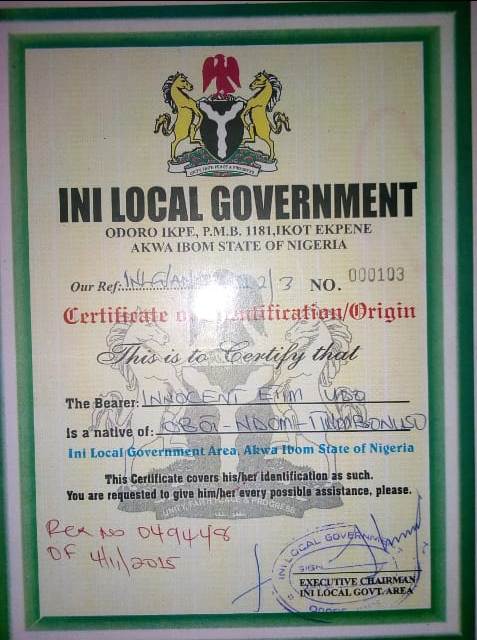 INI LOCAL GOVERNMENT
ODORO IKPE, P.M.B. 1181,IKOT EKPENE
AKWA IBOM STATE OF NIGERIA
Our Ref: 2/3 NO. 000103
Certificate of Identification/Origin
This is to Certify that
The Bearer: INNOCENT ETIM UDO
Is a native of:
Ini Local Government Area, Akwa Ibom State of Nigeria
This Certificate covers his/her identification as such.
You are requested to give him/her every possible assistance, please.
UNITY, FAITH, PEACE & PROGRESS
049448
OF 4/11/2015
INI LOCAL GOVERNMENT
SIGN
EXECUTIVE CHAIRMAN
INI LOCAL GOVT. AREA